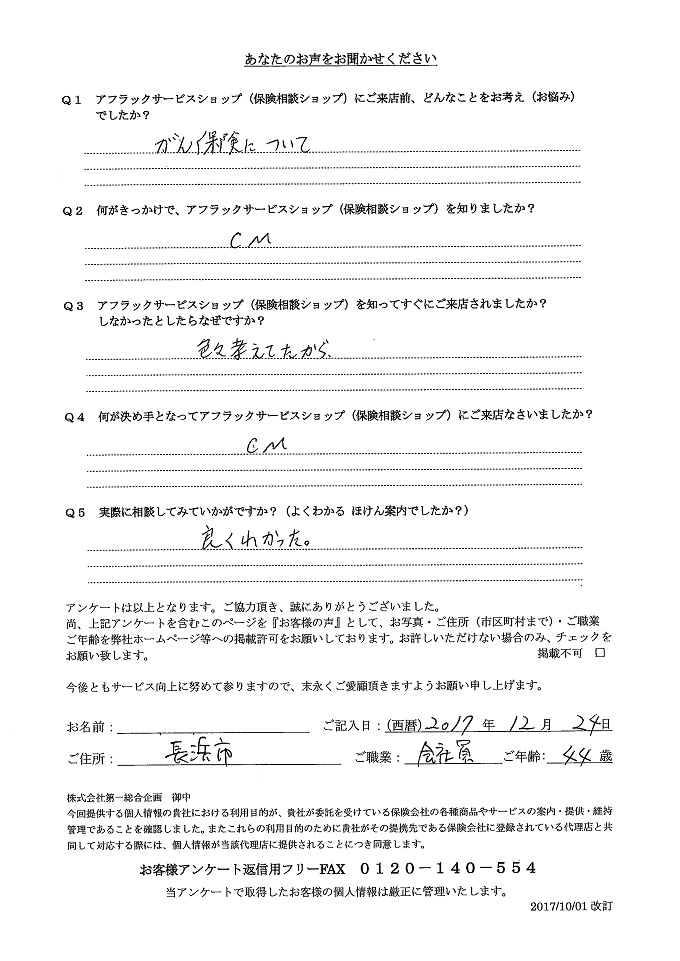 あなたのお声をお聞かせください
Q1 アフラックサービスショップ（保険相談ショップ）にご来店前、どんなことをお考え（お悩み）
でしたか？
がん保険について
Q2 何がきっかけで、アフラックサービスショップ（保険相談ショップ）を知りましたか？
CM
Q3 アフラックサービスショップ（保険相談ショップ）を知ってすぐにご来店されましたか？
しなかったとしたらなぜですか？
色々考えてたから、
Q4 何が決め手となってアフラックサービスショップ（保険相談ショップ）にご来店なさいましたか？
CM
Q5 実際に相談してみていかがですか？（よくわかる ほけん案内でしたか？）
良くわかった。
アンケートは以上となります。ご協力頂き、誠にありがとうございました。
尚、上記アンケートを含むこのページを『お客様の声』として、お写真・ご住所（市区町村まで）・ご職業
ご年齢を弊社ホームページ等への掲載許可をお願いしております。お許しいただけない場合のみ、チェックを
お願い致します。 掲載不可 □
今後ともサービス向上に努めて参りますので、末永くご愛顧頂きますようお願い申し上げます。
お名前： ご記入日：(西暦) 2017 年 12 月 24日
ご住所： 長浜市 ご職業： 会社員 ご年齢: 44 歳
株式会社第一総合企画 御中
今回提供する個人情報の貴社における利用目的が、貴社が委託を受けている保険会社の各種商品やサービスの案内・提供・維持
管理であることを確認しました。またこれらの利用目的のために貴社がその提携先である保険会社に登録されている代理店と共
同して対応する際には、個人情報が当該代理店に提供されることにつき同意します。
お客様アンケート返信用フリーFAX 0120－140－554
当アンケートで取得したお客様の個人情報は厳正に管理いたします。
2017/10/01 改訂